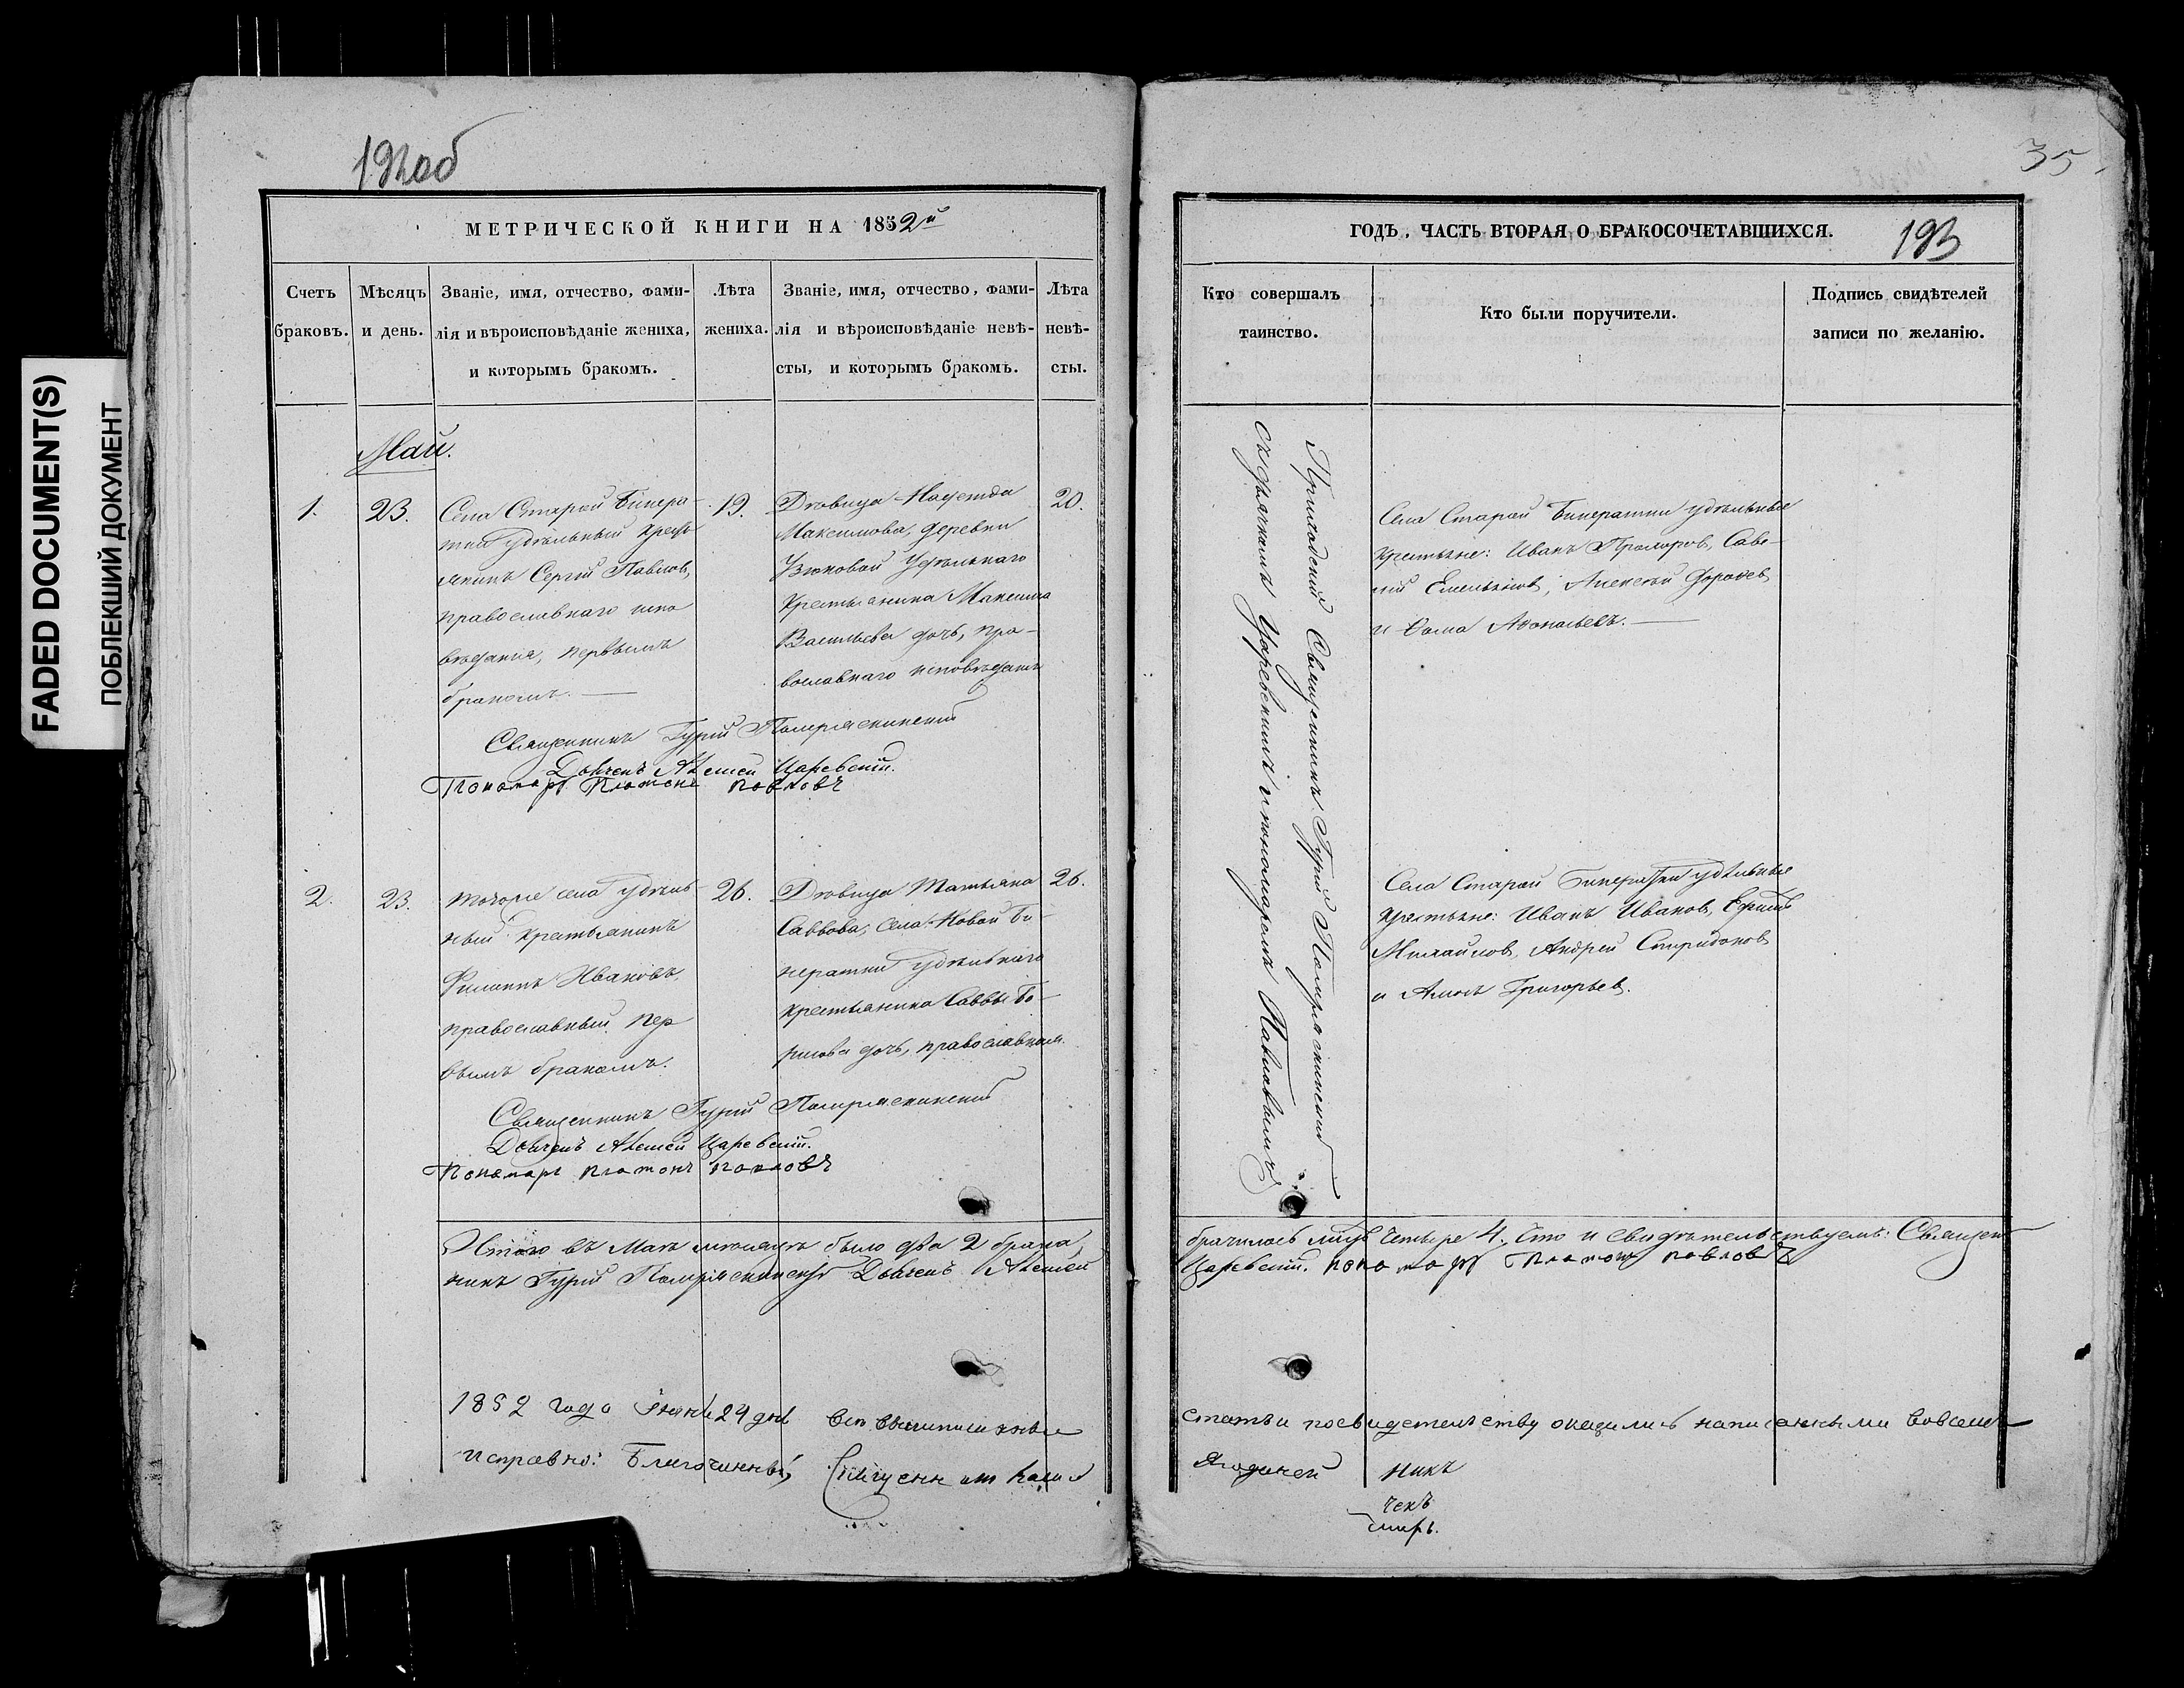 FADED DOCUMENT(S)
ПОБЛЕКШИЙ ДОКУМЕНТ
192об
МЕТРИЧЕСКОЙ КНИГИ НА 1852й
Счетъ браковъ.
Мѣсяцъ и день.
Званіе, имя, отчество, фами-
лія и вѣроисповѣданіе жениха,
и которымъ бракомъ.
Лѣта
жениха.
Званіе, имя, отчество, фами-
лія и вѣроисповѣданіе невѣ-
сты, и которымъ бракомъ.
Лѣта
невѣ-
сты.
Май.
1.
23.
Села Старой Бинера-
тки удѣльный кресть
янинъ Сергій Павлов,
православнаго испо
вѣданія, первымъ
бракомъ.
19.
Дѣвица Надежда
Максимова, деревни
Узюковой Удѣльнаго
Крестьянина Максима
Васильева дочь, пра-
вославнаго исповѣданія
20.
Священникъ Гурій
Дьячекъ Алексей Царевскій.
Пономарь Платонъ Павловъ
2.
23.
тогоже села удѣль-
ный крестьянинъ
Филиппъ Ивановъ,
православный пер
вымъ бракомъ.
26.
Дѣвица Татьяна
Саввова, села Новой Би-
нератки удѣльнаго
крестьянина Саввы Бо-
рисова дочь, православная.
26.
Священникъ Гурій
Дьячекъ Алексей Царевскій.
Пономарь Платонъ Павловъ
Итого въ Маѣ мѣсяцѣ было два 2 брака,
никъ Гурій Дьячекъ Алексей
1852 года 29 дня Сіи
исправно: Благочинный,
35
ГОДЪ. ЧАСТЬ ВТОРАЯ О БРАКОСОЧЕТАВШИХСЯ.
193
Кто совершалъ
таинство.
Кто были поручители.
Подпись свидѣтелей
записи по желанію.
Приходскій Священникъ Гурій
съ дьячкомъ Царевскимъ и пономаремъ Павловымъ
Села Старой Бинератки удѣльные
крестьяне: Иванъ Прохоров, Саве-
лій Емельянов, Алексѣй Фороѳев
и Ѳома Аѳонасьевъ.
Села Старой Бинератки удѣльные
крестьяне: Иванъ Иванов, Ефимъ
Михайлов, Андрей Спиридонов
и Григорьев.
брачилось лицъ четыре 4. Что и свидѣтельствуемъ: Священ
Царевскій. пономарь Платонъ Павловъ
статьи посвидетельству оказались написанными вовсем
никъ
чекъ
марь.